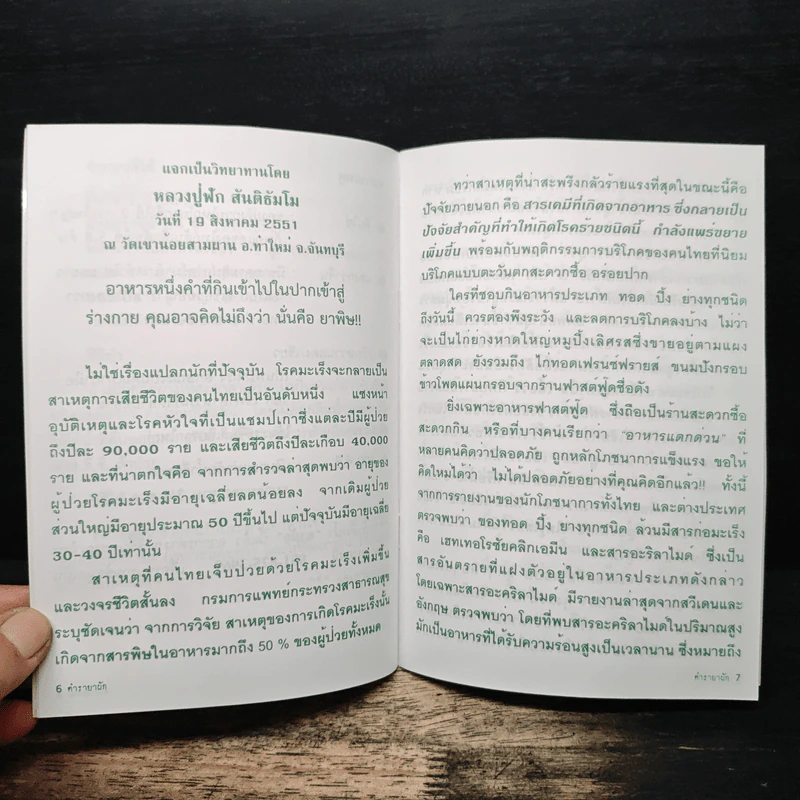 แจกเป็นวิทยาทานโดย
หลวงปู่ฟัก สันติธัมโม
วันที่ 19 สิงหาคม 2551
ณ วัดเขาน้อยสามผาน อ.ท่าใหม่ จ.จันทบุรี
อาหารหนึ่งคำที่กินเข้าไปในปากเข้าสู่
ร่างกาย คุณอาจคิดไม่ถึงว่า นั่นคือ ยาพิษ!!
ไม่ใช่เรื่องแปลกนักที่ปัจจุบัน โรคมะเร็งจะกลายเป็น
สาเหตุการเสียชีวิตของคนไทยเป็นอันดับหนึ่ง แซงหน้า
อุบัติเหตุและโรคหัวใจที่เป็นแชมป์เก่าซึ่งแต่ละปีมีผู้ป่วย
ถึงปีละ 90,000 ราย และเสียชีวิตถึงปีละเกือบ 40,000
ราย และที่น่าตกใจคือ จากการสำรวจล่าสุดพบว่า อายุของ
ผู้ป่วยโรคมะเร็งมีอายุเฉลี่ยลดน้อยลง จากเดิมผู้ป่วย
ส่วนใหญ่มีอายุประมาณ 50 ปีขึ้นไป แต่ปัจจุบันมีอายุเฉลี่ย
30-40 ปีเท่านั้น
สาเหตุที่คนไทยเจ็บป่วยด้วยโรคมะเร็งเพิ่มขึ้น
และวงจรชีวิตสั้นลง กรมการแพทย์กระทรวงสาธารณสุข
ระบุชัดเจนว่า จากการวิจัย สาเหตุของการเกิดโรคมะเร็งนั้น
เกิดจากสารพิษในอาหารมากถึง 50 % ของผู้ป่วยทั้งหมด
6 ตำรายาผัก
ทว่าสาเหตุที่น่าสะพรึงกลัวร้ายแรงที่สุดในขณะนี้คือ
ปัจจัยภายนอก คือ สารเคมีที่เกิดจากอาหาร ซึ่งกลายเป็น
ปัจจัยสำคัญที่ทำให้เกิดโรคร้ายชนิดนี้ กำลังแพร่ขยาย
เพิ่มขึ้น พร้อมกับพฤติกรรมการบริโภคของคนไทยที่นิยม
บริโภคแบบตะวันตกสะดวกซื้อ อร่อยปาก
ใครที่ชอบกินอาหารประเภท ทอด ปิ้ง ย่างทุกชนิด
ถึงวันนี้ ควรต้องพึงระวัง และลดการบริโภคลงบ้าง ไม่ว่า
จะเป็นไก่ย่างหาดใหญ่หมูปิ้งเลิศรสซึ่งขายอยู่ตามแผง
ตลาดสด ยังรวมถึง ไก่ทอดเฟรนซ์ฟรายส์ ขนมปังกรอบ
ข้าวโพดแผ่นกรอบจากร้านฟาสต์ฟู้ดชื่อดัง
ยิ่งเฉพาะอาหารฟาสต์ฟู้ด ซึ่งถือเป็นร้านสะดวกซื้อ
สะดวกกิน หรือที่บางคนเรียกว่า "อาหารแดกด่วน" ที่
หลายคนคิดว่าปลอดภัย ถูกหลักโภชนาการแข็งแรง ขอให้
คิดใหม่ได้ว่า ไม่ได้ปลอดภัยอย่างที่คุณคิดอีกแล้ว!! ทั้งนี้
จากการรายงานของนักโภชนาการทั้งไทย และต่างประเทศ
ตรวจพบว่า ของทอด ปิ้ง ย่างทุกชนิด ล้วนมีสารก่อมะเร็ง
คือ เฮทเทอโรซัยคลิกเอมีน และสารอะริลาไมด์ ซึ่งเป็น
สารอันตรายที่แฝงตัวอยู่ในอาหารประเภทดังกล่าว
โดยเฉพาะสารอะคริลาไมด์ มีรายงานล่าสุดจากสวีเดนและ
อังกฤษ ตรวจพบว่า โดยที่พบสารอะคริลาไมดในปริมาณสูง
มักเป็นอาหารที่ได้รับความร้อนสูงเป็นเวลานาน ซึ่งหมายถึง
ตำรายาผัก 7